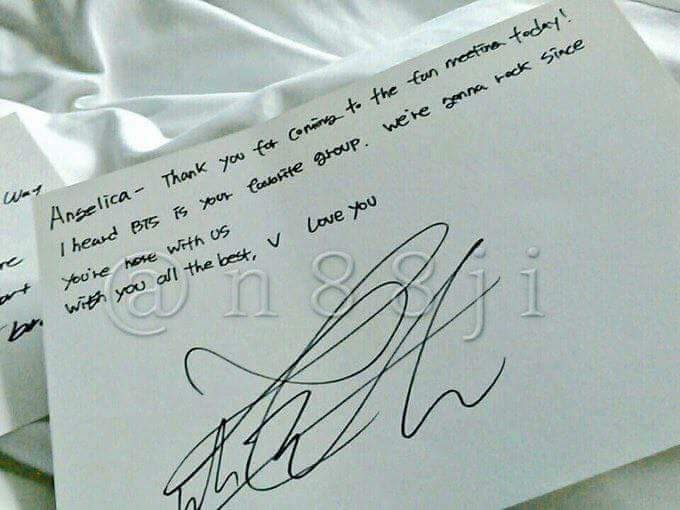 Angelica - Thank you for coming to the fan meeting today!
I heard BTS is your favorite group. We're gonna rock since
you're here with us
wish you all the best, V Love you
@n88ji
way